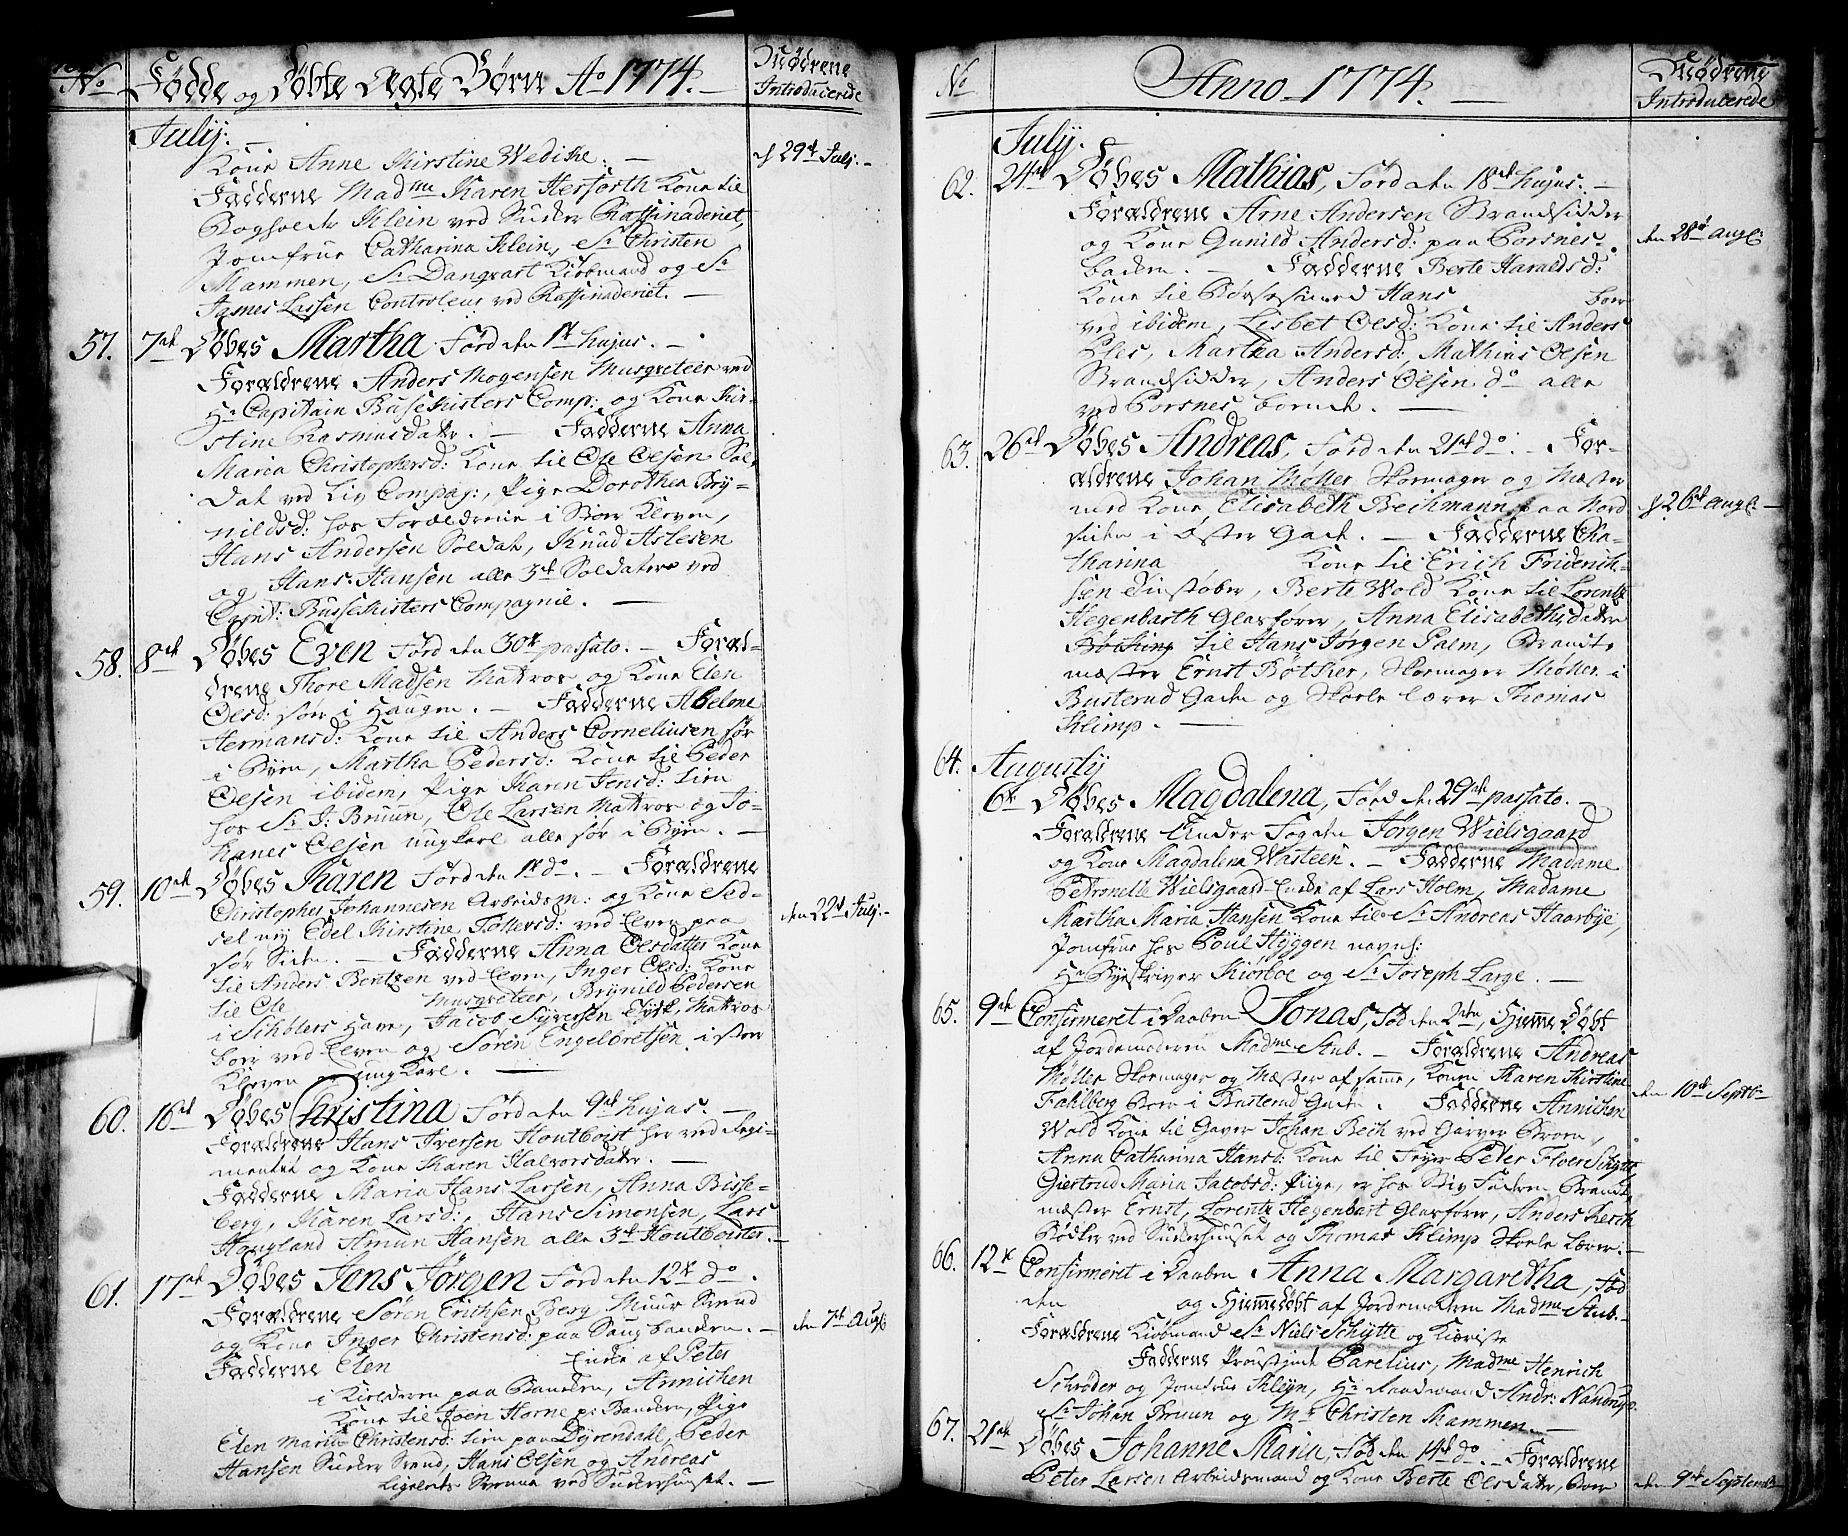 No Fødde og Døbte Ægte Børn Ao 1774. Mødrene
Introducerede
July:
Kone Anne Kirstine Wedike. d 29de July.
Fadderne Madme Karen Herforth Kone til
Bogholdr Klein ved Sucker Raffinaderiet,
Jomfrue Catharina Klein, Sr Christen
Mammen, Sr Danqvart Kiøbmand og Sr
James Lassen Controleur ved Raffinaderiet.
57. 7de Døbes Martha Fød den 1te hujus.
Forældrene Anders Mogensen Musqveteer ved
Hr Capitain Bussekisters Comp: og Kone Kir-
stine Rasmusdatr. Fadderne Anna
Maria Christophersd: Kone til Ole Olsen Sol-
dat ved Liv Compag:, Pige Dorothea Bry-
nildsd: hos Forældrene i Stor Kleven,
Hans Andersen Soldat, Knud Aslesen
og Hans Hansen alle 3de Soldater ved
Capit: Bussekisters Compagnie.
58. 8de Døbes Even Fød den 30te passato. Foræl-
drene Thore Madsen Matros og Kone Elen
Olsd: før i Haugen. Fadderne Abelone
Hermansd: Kone til Anders Corneliusen før
i Byen, Martha Pedersd: Kone til Peder
Olsen ibidem, Pige Karen Jensd: tien
hos Sr J: Bruun, Ole Larsen Matros og Jo-
hanes Olsen ungkarl alle før i Byen.
59. 10de Døbes Karen Fød den 1te do. Forældrene
Christopher Johannesen Arbeidsm: og Kone
Edel Kirstine Tollefsd: ved Elven paa
før Siden. Fadderne Anna Olsdatter Kone den 22de July.
til Anders Bentzen ved Elven, Inger Olsd: Kone
til Ole Musqveteer, Brynild Pedersen
i Sihblers Have, Jacob Syversen Matros
boer ved Elven og Søren Engelbretsen i stor
Kleven ungKarl.
60. 16de Døbes Christina Fød den 9de hujus.
Forældrene Hans Iversen Houtboist her ved Regi-
mentet og Kone Karen Halvorsdater.
Fadderne Maria Hans Larsen, Anna Bisse-
berg, Karen Larsd:, Hans Simonsen, Lars
Hougland Amun Hansen alle 3de Houtboister.
61. 17de Døbes Jens Jørgen Fød den 12te do.
Forældrene Søren Erichsen Berg Muur Svend den 7de Augl
og Kone Inger Christensd: paa Saugbanken.
Fadderne Elen Enke af Peter
i Kielderen paa Banken, Annichen
Kone til Joen Horne p: Banken, Pige
Elen Maria Christensd: tien paa Dyrendahl, Peder
Hansen Sucker Svend, Hans Olsen og Andreas
ligeledes Svenne ved Suckerhuuset.
No Anno 1774. Mødrene
Introducerede
July.
62. 24de Døbes Mathias, Fød den 18de hujus.
Forældrene Arne Andersen Brandsidder
og Kone Gunild Andersd: paa Porsnes- den 28de Augl:
backen. Fadderne Berte Haraldsd:
Kone til Hans boer
ved ibidem, Lisbet Olsd: Kone til Anders
Martha Andersd: Mathias Olsen
Brandsidder, Anders Olsen do alle
ved Porsnes boende.
63. 26de Døbes Andreas, Fød den 21de do. For-
ældrene Johan Møller Skomager og Mæster
med Kone Elisabeth Beichmann paa Nord d 26de Augl:
siden i Øster Gade. Fadderne Cha-
tharina Kone til Erich Friderich-
sen Tinstøber, Berte Wold Kone til Lorentz
Hegenbarth Glarfører, Anna Elisabethsdater
til Hans Jørgen Palm, Brandt-
mæster Ernst Bøtker, Skomager Møller i
Busterud Gaden og Skole Lærer Thomas
Klimp.
64. Augusty
6te Døbes Magdalena, Fød d 29de passato.
Forældrene Under Fogden Jørgen Wielsgaard
og Kone Magdalena Wasteen. Fadderne Madame
Petronelle Wielsgaard Enke af Lars Holm, Madame
Martha Maria Hansen Kone til Sr Andreas Haarbye,
Jomfrue hos Poul Hyggen navnl:
Hr Byeskriver Kiorboe og Sr Joseph Large.
65. 9de Confirmeret i Daaben Jonas, Fød den 2den, Hjemme Døbt
af Jordemoderen Madme Stub. Forældrene Andreas
Møller Skomager og Mæster af samme, Konen Karen Kirstine
Fahlberg boer i Busterud Gaden. Fadderne Annichen den 10de Septbr
Wold Kone til Gaver Johan Bech ved Garver Broen,
Anna Catharina Hansd: Kone til Peter Floer
Giertrud Maria Jacobsd: Pige, er hos Stif Faderen Brandt
mæster Ernst, Lorentz Hegenbart Glarfører, Anders Lerch
Bødker ved Suckerhuuset og Thomas Klimp Skole Lærer.
66. 12te Confirmeret i Daaben Anna Margaretha, Fød
den og Hjemmedøbt af Jordemoderen Madme Stub.
Forældrene Kiøbmand Sr Niels Schytte og Kiæriste
Fadderne Provstinde Parelius, Madme Henrich
Schrøder og Jomfrue Kleyn, Hr Raadmand Andr:
Sr Johan Bruun og Mr Christen Mammen.
67. 21de Døbes Johanne Maria, Fød den 14de do. Forældrene
Peter Larsen Arbeidsmand og Kone Berte Olsdater, boer den 9de September